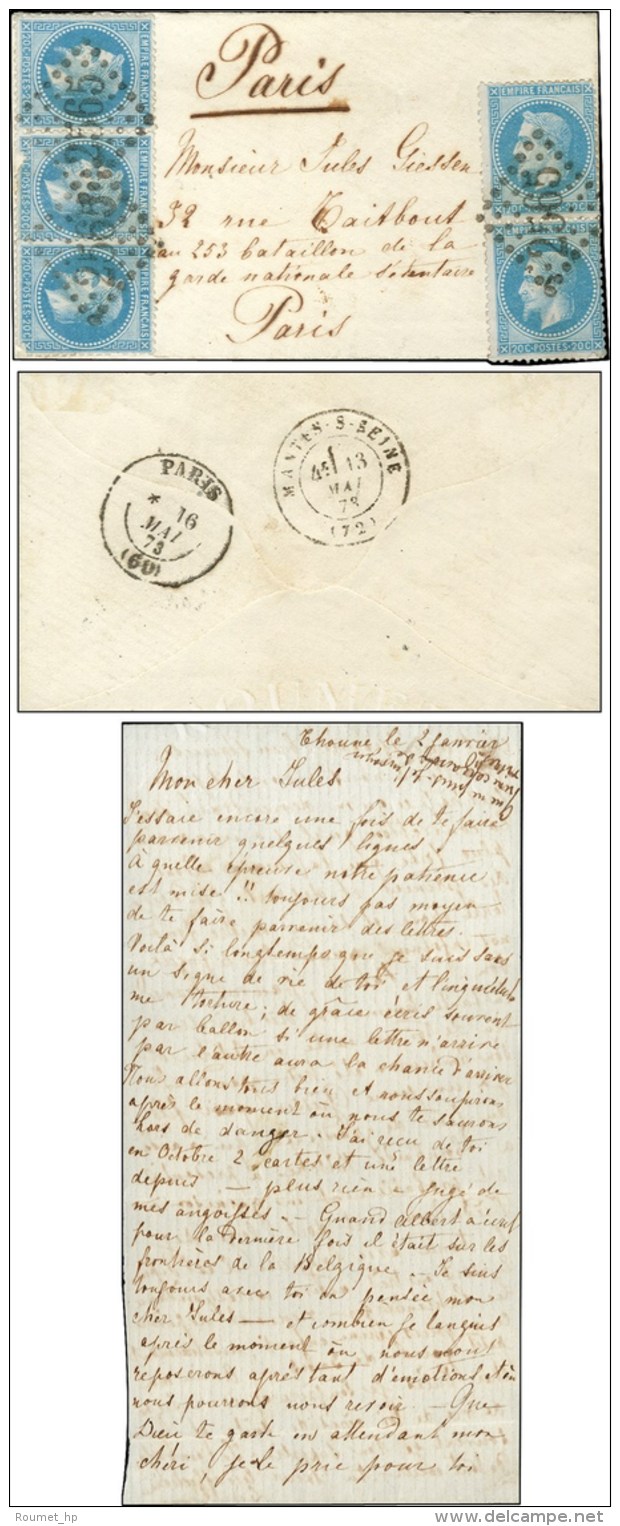 Paris
EMPIRE FRANÇAIS
EMPIRE FRANÇAIS
EMPIRE FRANÇAIS
EMPIRE FRANÇAIS
20C POSTES 20C
Monsieur Jules Giessen
32 rue Taitbout
au 253 bataillon de la
garde nationale sédentaire
Paris
PARIS
* 16
MAI
73
(60)
MANTES-S-SEINE
4E 13
MAI
73
(72)
Thoune le 2 Janvier
Mon cher Jules
J'essaie encore une fois de te faire
parvenir quelques lignes.
à quelle épreuve notre patience
est mise!! toujours pas moyen
de te faire parvenir des lettres.
Voilà si longtemps que je suis sans
un signe de vie de toi et l'inquiétude
me torture; de grâce écris souvent
par ballon si une lettre n'arrive
pas l'autre aura la chance d'arriver
Nous allons tous bien et nous soupirons
après le moment où nous te saurons
hors de danger. J'ai reçu de toi
en Octobre 2 cartes et une lettre
depuis — plus rien — juge de
mes angoisses. — Quand Albert a écrit
pour la dernière fois il était sur les
frontières de la Belgique — Je suis
toujours avec toi en pensée mon
cher Jules — et combien je languis
après le moment où nous nous
reposerons après tant d'émotions et où
nous pourrons nous revoir — Que
Dieu te garde en attendant mon
chéri, je le prie pour toi
© Roumet_hp
delcampe.net